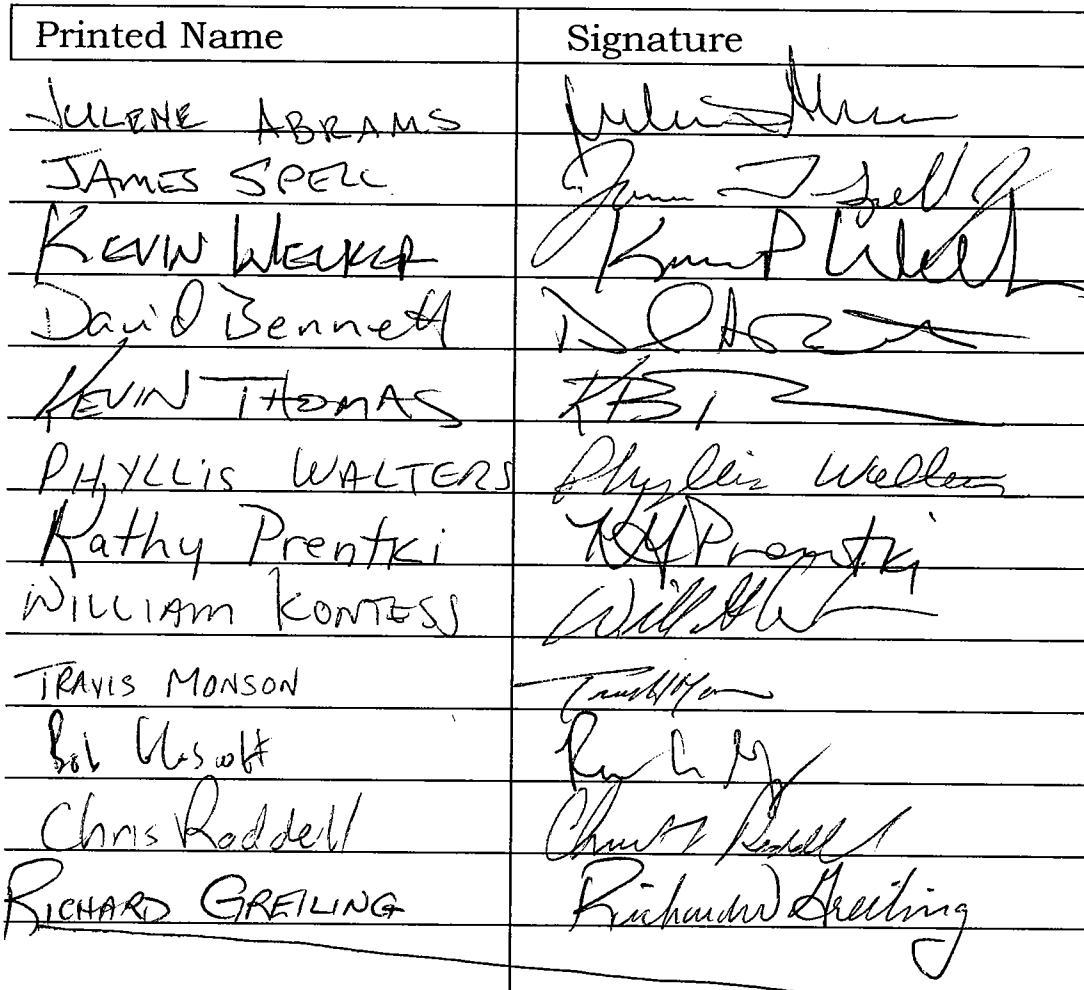 Printed Name Signature
JULENE ABRAMS
JAMES SPELL James T Spell Jr
KEVIN WELKER Kevin P Welk
David Bennett
KEVIN THOMAS KBT
PHYLLIS WALTERS Phyllis Walters
Kathy Prentki KM Prentki
WILLIAM KONTESS
TRAVIS MONSON
Bob
Chris Roddell Roddell
RICHARD GREILING Richard W Greiling